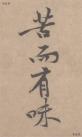 苦而有味